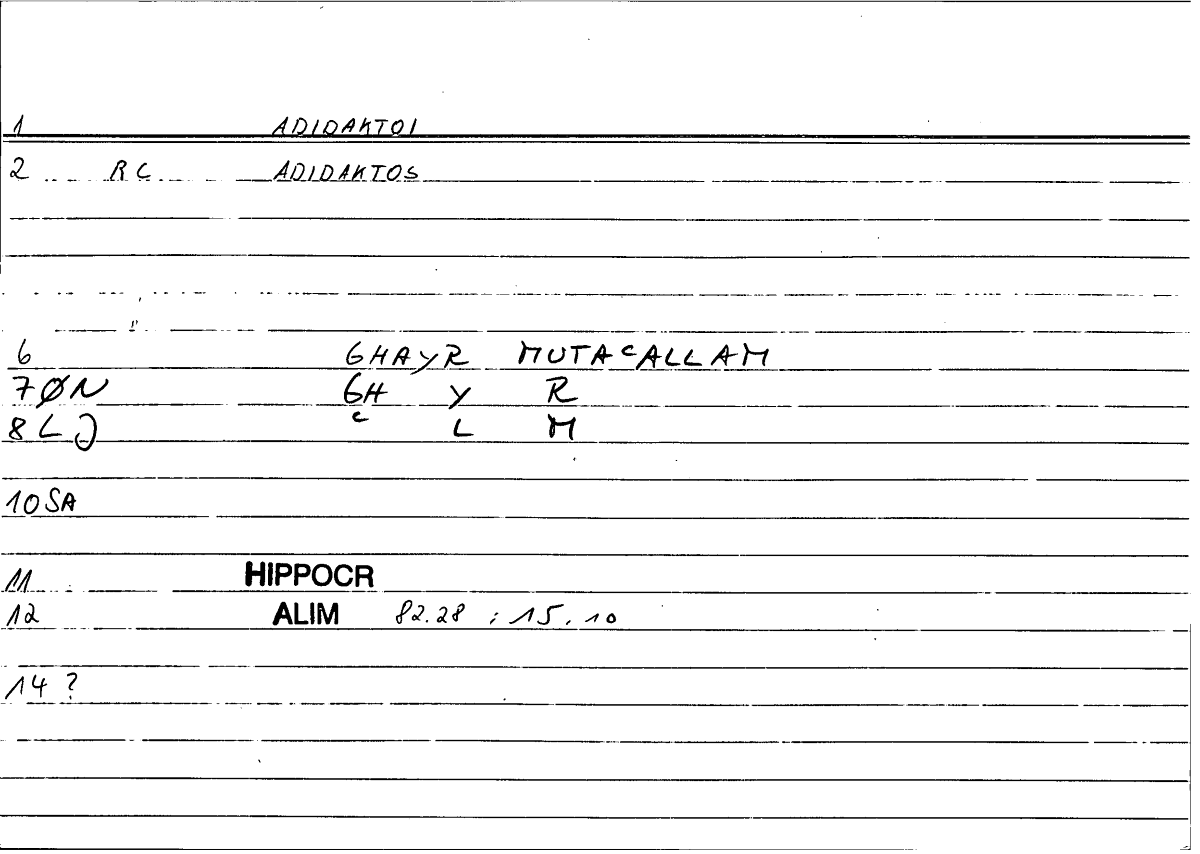 1 ADIDAKTOI
2 RC ADIDAKTOS
6 GHAYR MUTACALLAM
7ØN GH Y R
8LJ C L M
10SA
11 HIPPOCR
12 ALIM 82.28 ; 15.10
14 ?